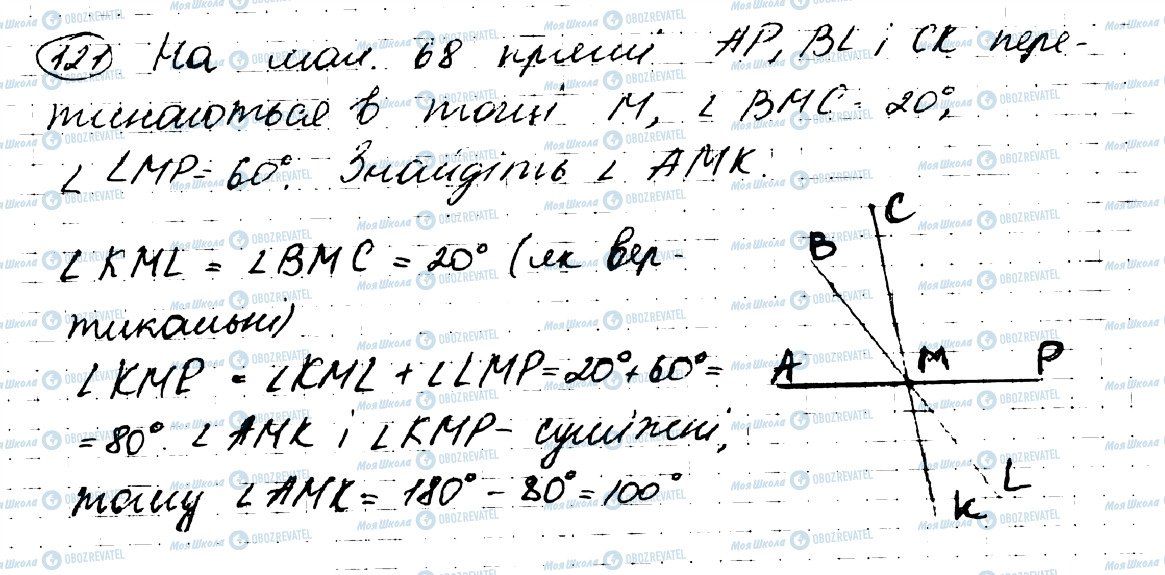 121 На мал. 68 прямі AP, BL і CK пере-
тинаються в точці M, ∠BMC = 20°,
∠LMP = 60°. Знайдіть ∠AMK.
∠KML = ∠BMC = 20° (як вер-
тикальні)
∠KMP = ∠KML + ∠LMP = 20° + 60° =
= 80°. ∠AMK і ∠KMP - суміжні,
тому ∠AMK = 180° - 80° = 100°
C
B
A
M
P
L
K
МояШкола OBOZREVATEL